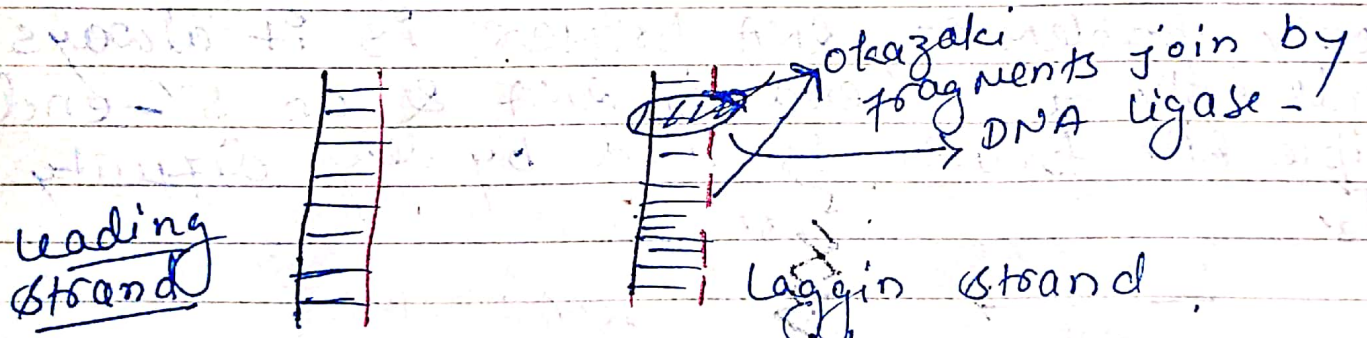 Okazaki
fragments join by
DNA ligase -
Leading
strand
Laggin strand